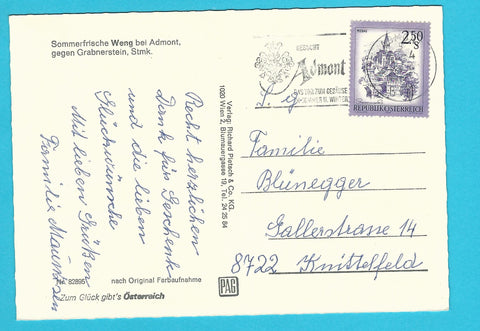 Sommerfrische Weng bei Admont,
gegen Grabnerstein, Stmk.
Recht herzlichen
Dank für Geschenk
und die lieben
Glückwünsche
Mit lieben Grüßen
Familie
82895
nach Original Farbaufnahme
Zum Glück gibt's Österreich
Verlag: Richard Pietsch & Co. KG.
1020 Wien 2, Blumauergasse 19, Tel. 24 25 84
PAG
BESUCHT
Admont
DAS TOR ZUM GESÄUSE
2.50 S
REPUBLIK ÖSTERREICH
Familie
Blünegger
Gallerstrasse 14
8722 Knittelfeld